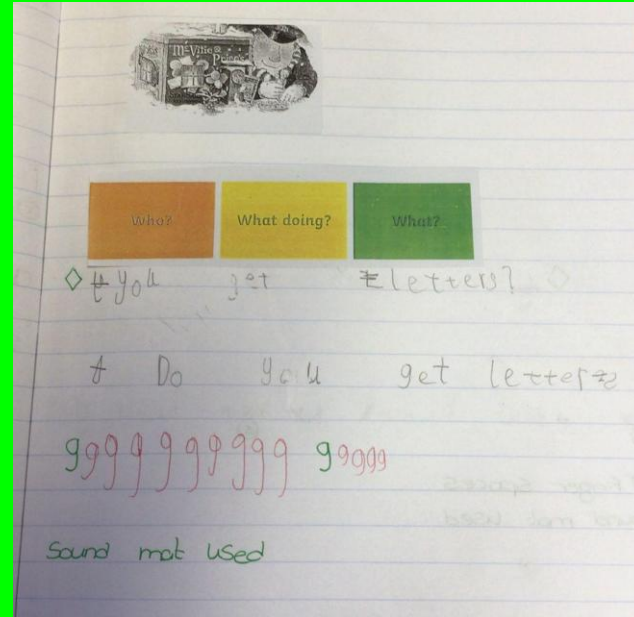 McVitie &
Price's
Who? What doing? What?
you get letters?
Do you get letters
ggggggggggg ggggg
sound mat used